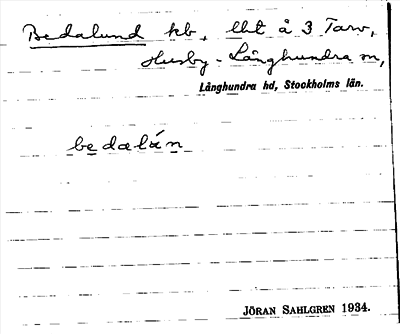 Bedalund kb, lht å 3 Tarv,
Husby-Långhundra sn,
Långhundra hd, Stockholms län.
bedalán
JÖRAN SAHLGREN 1934.